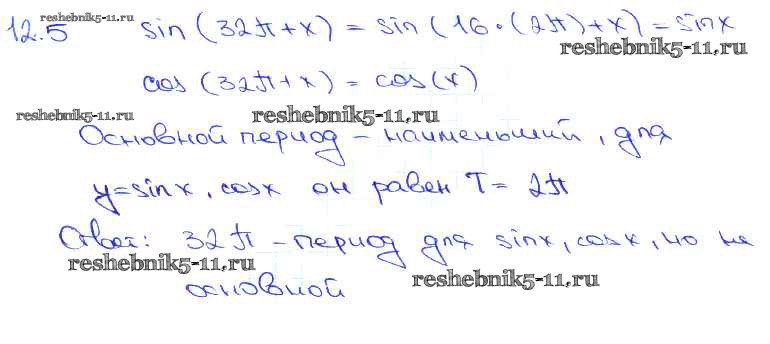 reshebnik5-11.ru
12.5 sin(32π+x) = sin(16·(2π)+x) = sinx
reshebnik5-11.ru
cos(32π+x) = cos(x)
reshebnik5-11.ru reshebnik5-11.ru
Основной период – наименьший, для
y=sinx, cosx он равен T= 2π
Ответ: 32π – период для sinx, cosx, но не
reshebnik5-11.ru
основной reshebnik5-11.ru